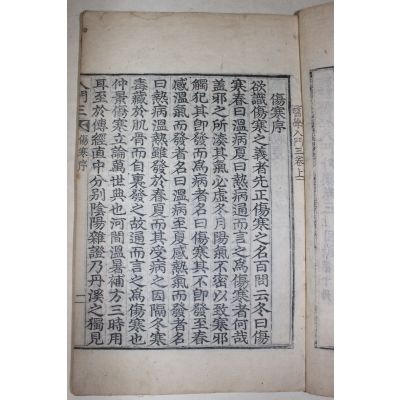 傷寒序
欲識傷寒之義者先正傷寒之名百問云冬曰傷
寒春曰溫病夏曰熱病通而言之爲傷寒者何哉
盖邪之所湊其氣必虛冬月陽氣不密以致寒邪
觸犯其卽發而病者名曰傷寒其不卽發至春
感溫氣而發者名曰溫病至夏感熱氣而發者名
曰熱病溫熱雖發於春夏而其受病之因隔冬寒
毒藏於肌骨而自裏發之故通而言之爲傷寒也
仲景傷寒立論萬世典也河間溫暑補方三時用
耳至於傳經直中分別陰陽雜證乃丹溪之獨見
入門三
傷寒序
一
醫學入門三卷上